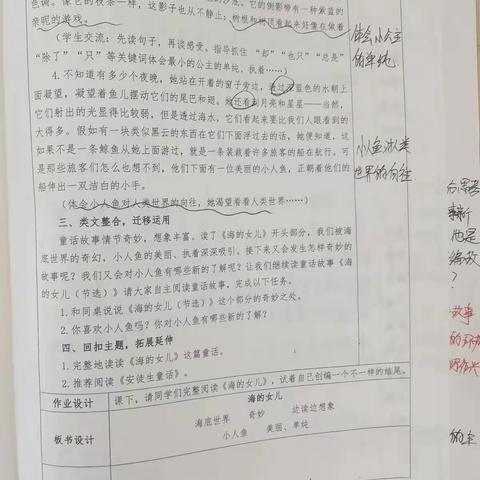 色调。像它的枝条一样，这影子也从不静止；树根和树顶看起来好像在做着
亲昵的游戏。
体会小公主
的单纯。
（学生交流：先读句子，再谈感受。指导抓住“却”“也只”“总是”
“除了”“只”等关键词体会最小的公主的单纯、执着……）
4.不知道有多少个夜晚，她站在开着的窗子旁边，透过深蓝色的水朝上
面凝望，凝望着鱼儿摆动它们的尾巴和翅。她还看到月亮和星星——当然，
它们射出的光显得比较弱，但是透过海水，它们看起来要比我们人眼看到的
大得多。假如有一块类似黑云的东西在它们下面浮过去的话，她便知道，这
如果不是一条鲸鱼从她上面游过，就是一条装载着许多旅客的船在航行。可
是那些旅客们怎么也想不到，他们下面有一位美丽的小人鱼，正朝着他们的
船伸出一双洁白的小手。
小人鱼对人类
世界的向往
（体会小人鱼对人类世界的向往，她渴望看看人类世界……）
三、类文整合，迁移运用
童话故事情节奇妙，想象丰富。读了《海的女儿》开头部分，我们被海
底世界的奇幻，小人鱼的美丽、执着深深吸引。接下来又会发生怎样奇妙的
故事呢？我们又会对小人鱼有哪些新的了解呢？让我们继续读童话故事《海
的女儿（节选）》请大家自主阅读童话故事，完成以下任务。
1.和同桌说说《海的女儿（节选）》这个部分的奇妙之处。
2.你喜欢小人鱼吗？你对小人鱼有哪些新的了解？
？
故事
四、回扣主题，拓展延伸
1.完整地读读《海的女儿》这篇童话。
2.推荐阅读《安徒生童话》。
作业设计
课下，请同学们完整阅读《海的女儿》，试着自己创编一个不一样的结尾。
板书设计
海的女儿
海底世界 奇妙 边读边想象
小人鱼 美丽、单纯